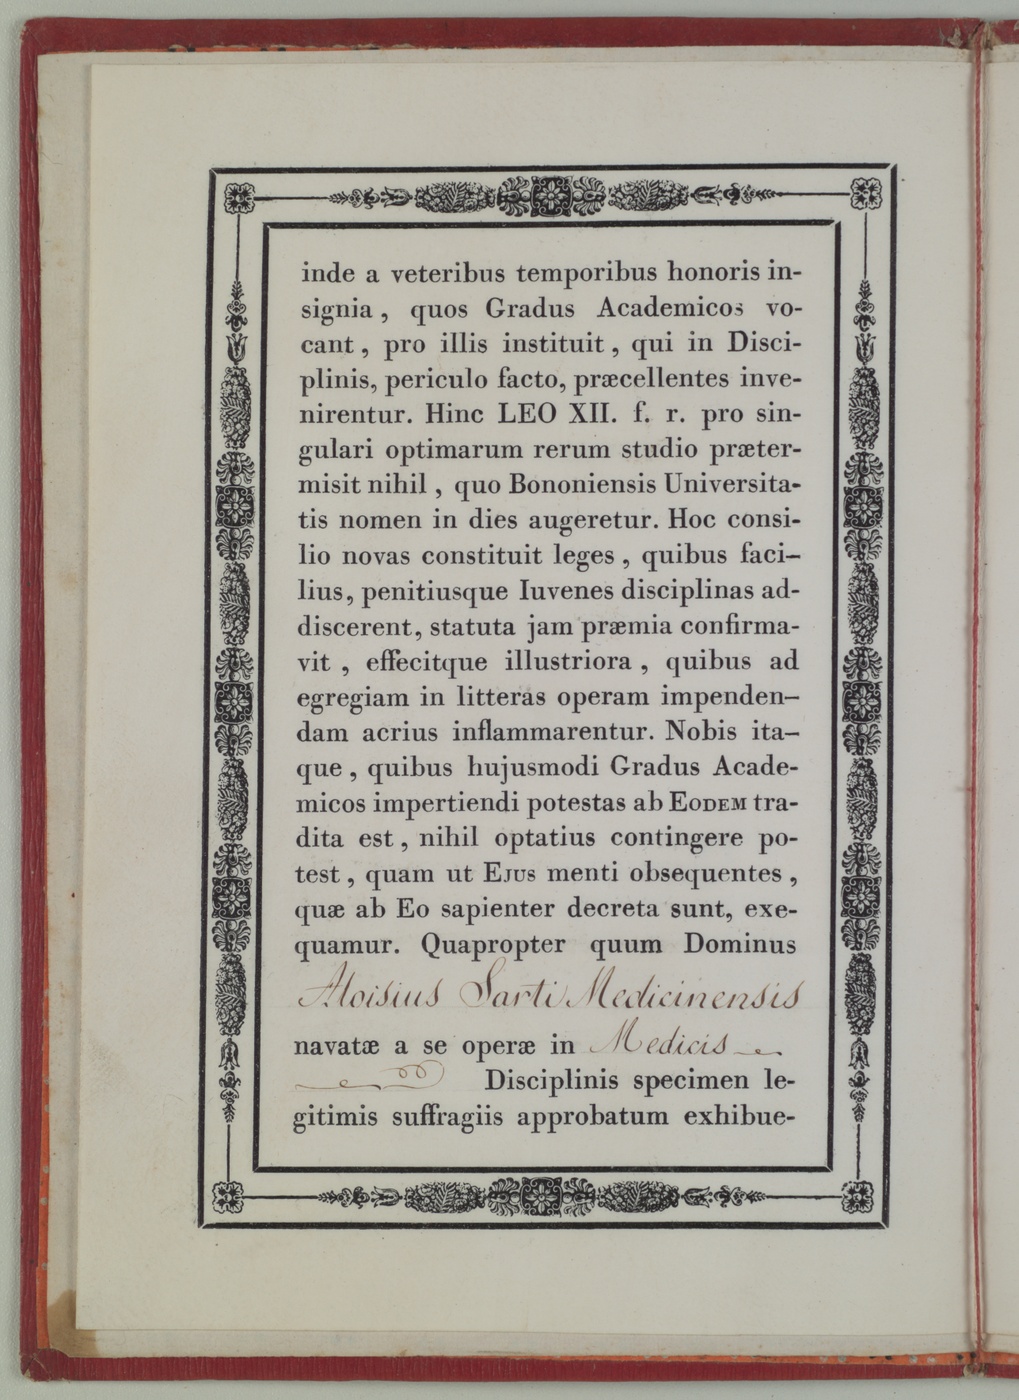 inde a veteribus temporibus honoris in-
signia , quos Gradus Academicos vo-
cant , pro illis instituit , qui in Disci-
plinis, periculo facto, præcellentes inve-
nirentur. Hinc LEO XII. f. r. pro sin-
gulari optimarum rerum studio præter-
misit nihil , quo Bononiensis Universita-
tis nomen in dies augeretur. Hoc consi-
lio novas constituit leges , quibus faci-
lius, penitiusque Iuvenes disciplinas ad-
discerent, statuta jam præmia confirma-
vit , effecitque illustriora , quibus ad
egregiam in litteras operam impenden-
dam acrius inflammarentur. Nobis ita-
que , quibus hujusmodi Gradus Acade-
micos impertiendi potestas ab EODEM tra-
dita est , nihil optatius contingere po-
test , quam ut EJUS menti obsequentes ,
quæ ab Eo sapienter decreta sunt, exe-
quamur. Quapropter quum Dominus
Aloisius Sarti Medicinensis
navatæ a se operæ in Medicis
Disciplinis specimen le-
gitimis suffragiis approbatum exhibue-